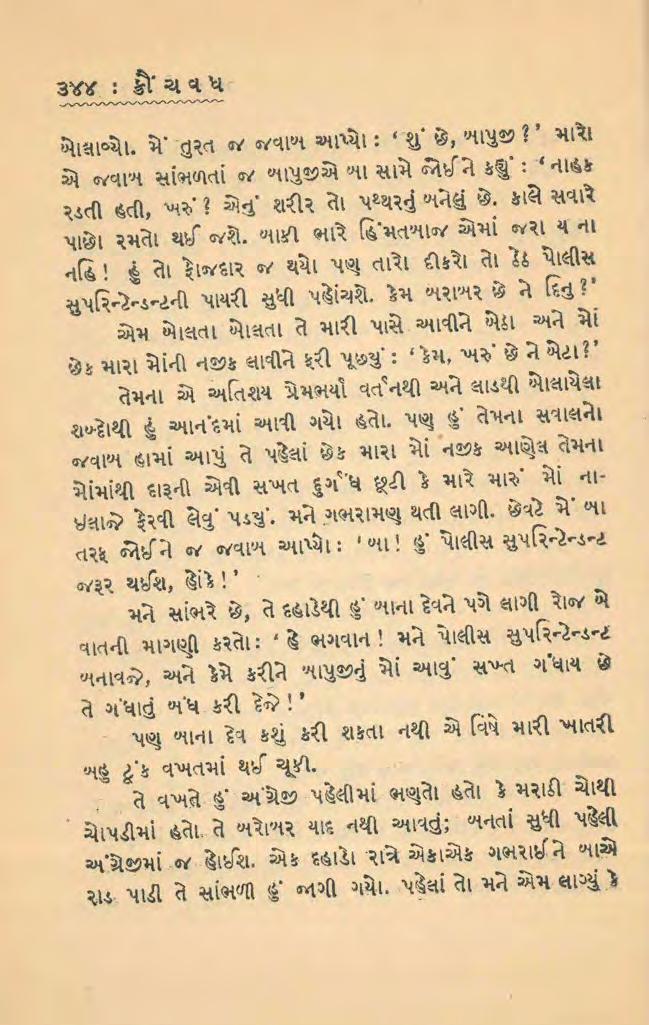 ૩૪૪ : ક્રૌંચવધ
બોલાવ્યો. મેં તુરત જ જવાબ આપ્યો : ‘ શું છે, બાપુજી ? ’ મારો
એ જવાબ સાંભળતાં જ બાપુજીએ બા સામે જોઈને કહ્યું : ‘ નાહક
રડતી હતી, ખરું ? એનું શરીર તો પથ્થરનું બનેલું છે. કાલે સવારે
પાછો રમતો થઈ જશે. બાકી ભારે હિંમતબાજ એમાં જરા ય ના
નહિ ! હું તો ફોજદાર જ થયો પણ તારો દીકરો તો ઠેઠ પોલીસ
સુપરિન્ટેન્ડન્ટની પાયરી સુધી પહોંચશે. કેમ બરાબર છે ને દિનુ ? ’
એમ બોલતા બોલતા તે મારી પાસે આવીને બેઠા અને મોં
છેક મારા મોંની નજીક લાવીને ફરી પૂછ્યું : ‘ કેમ, ખરું છે ને બેટા ? ’
તેમના એ અતિશય પ્રેમભર્યા વર્તનથી અને લાડથી બોલાયેલા
શબ્દોથી હું આનંદમાં આવી ગયો હતો. પણ હું તેમના સવાલનો
જવાબ હામાં આપું તે પહેલાં છેક મારા મોં નજીક આણેલ તેમના
મોંમાંથી દારૂની એવી સખત દુર્ગંધ છૂટી કે મારે મારું મોં ના-
ઇલાજે ફેરવી લેવું પડ્યું. મને ગભરામણ થતી લાગી. છેવટે મેં બા
તરફ જોઈને જ જવાબ આપ્યો : ‘ બા ! હું પોલીસ સુપરિન્ટેન્ડન્ટ
જરૂર થઈશ, હોંકે ! ’
મને સાંભરે છે, તે દહાડેથી હું બાના દેવને પગે લાગી રોજ બે
વાતની માગણી કરતો : ‘ હે ભગવાન ! મને પોલીસ સુપરિન્ટેન્ડન્ટ
બનાવજે, અને કેમે કરીને બાપુજીનું મોં આવું સખ્ત ગંધાય છે
તે ગંધાતું બંધ કરી દેજે ! ’
પણ બાના દેવ કશું કરી શકતા નથી એ વિષે મારી ખાતરી
બહુ ટૂંક વખતમાં થઈ ચૂકી.
તે વખતે હું અંગ્રેજી પહેલીમાં ભણતો હતો કે મરાઠી ચોથી
ચોપડીમાં હતો તે બરોબર યાદ નથી આવતું; બનતાં સુધી પહેલી
અંગ્રેજીમાં જ હોઈશ. એક દહાડો રાત્રે એકાએક ગભરાઈને બાએ
રાડ પાડી તે સાંભળી હું જાગી ગયો. પહેલાં તો મને એમ લાગ્યું કે